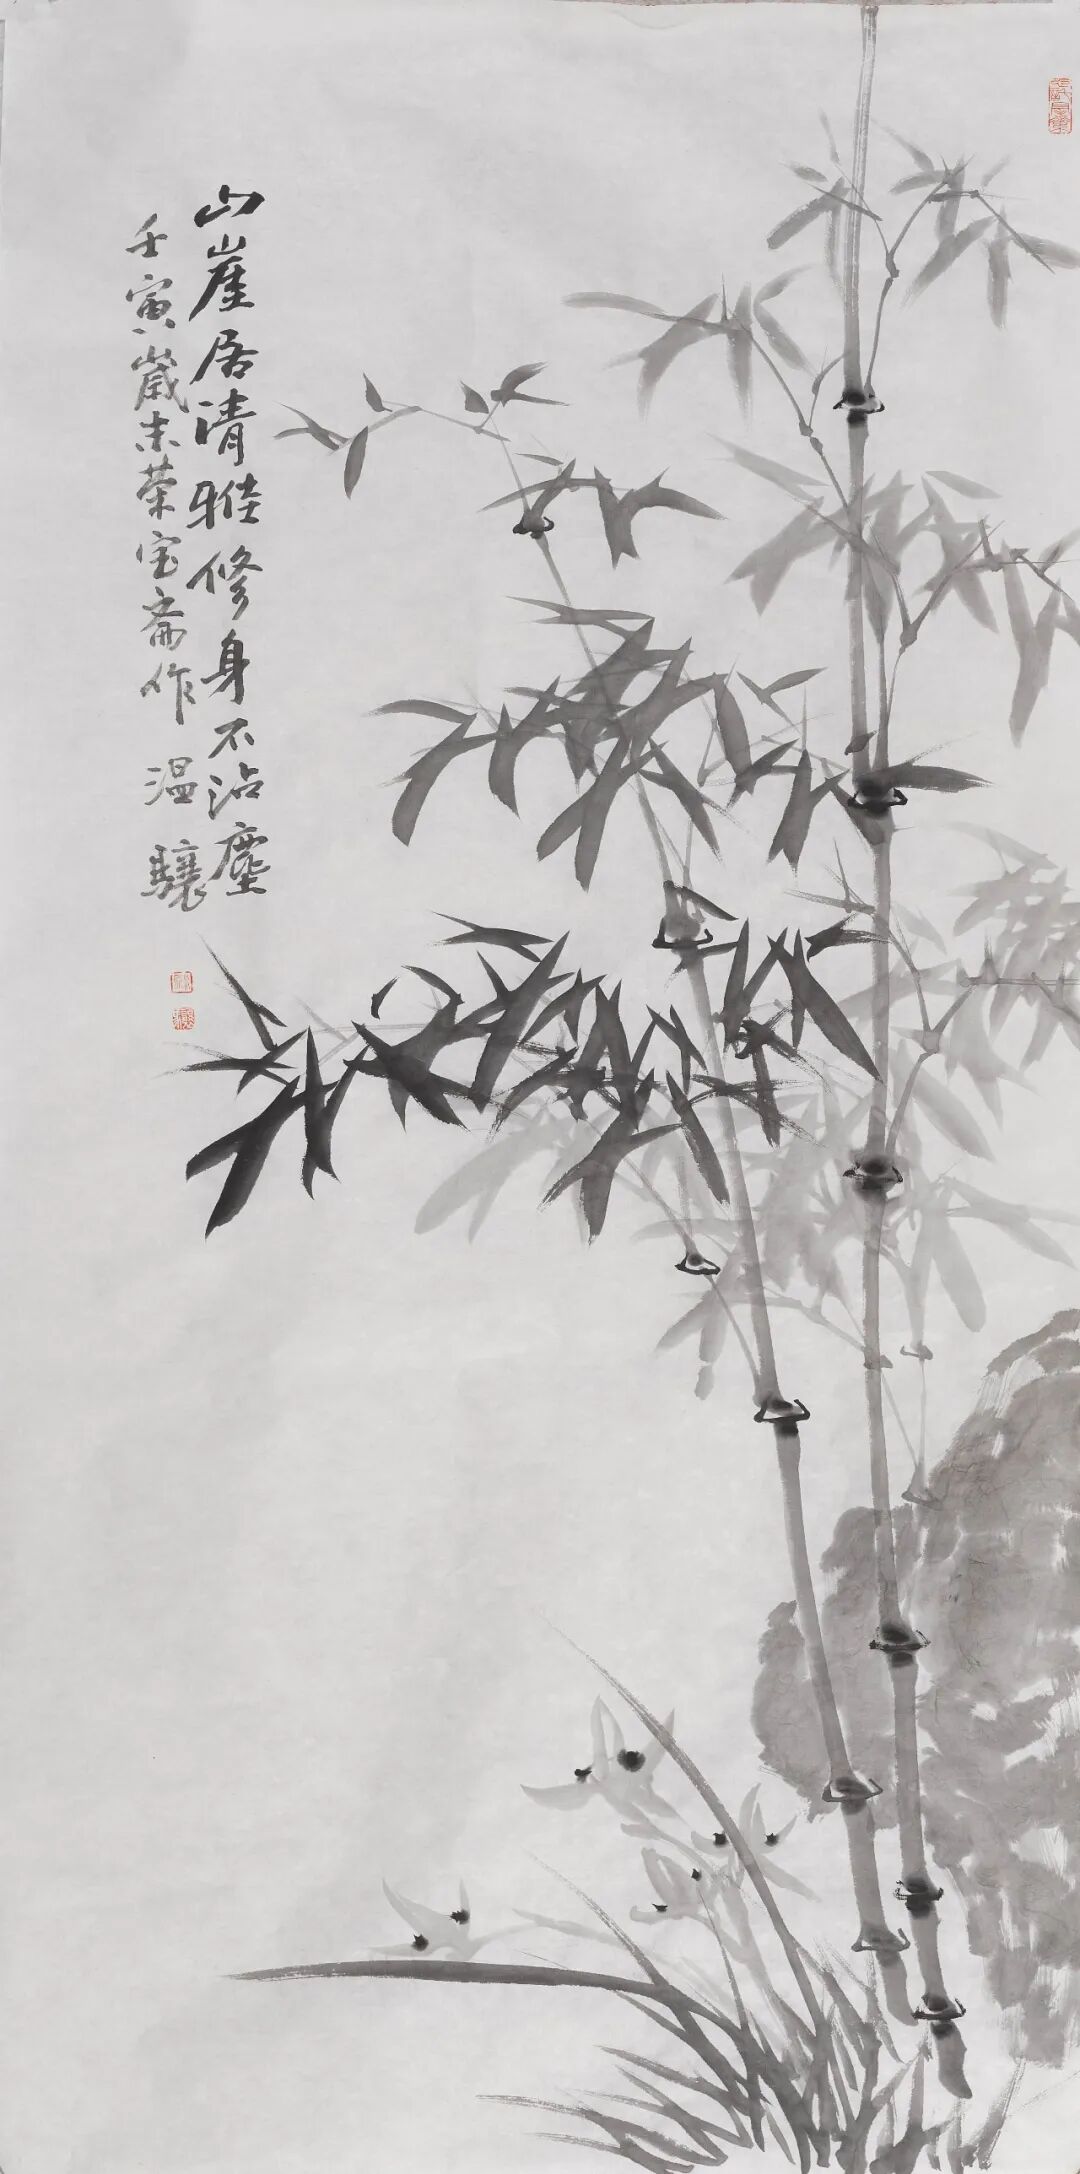 山崖居清雅修身不沾塵
壬寅歲末荣宝斋作温驤